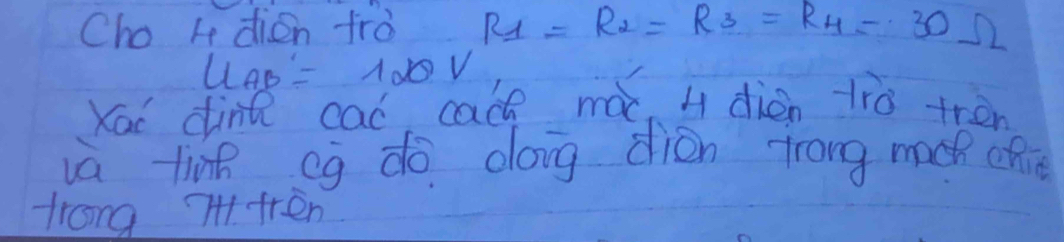 Cho 4 điện trở R1 = R2 = R3 = R4 = 30 Ω
UAB = 120 V,
Xác định các cách mắc 4 điện trở trên
và tính cg độ dòng điện trong mạch chính
trong TH trên